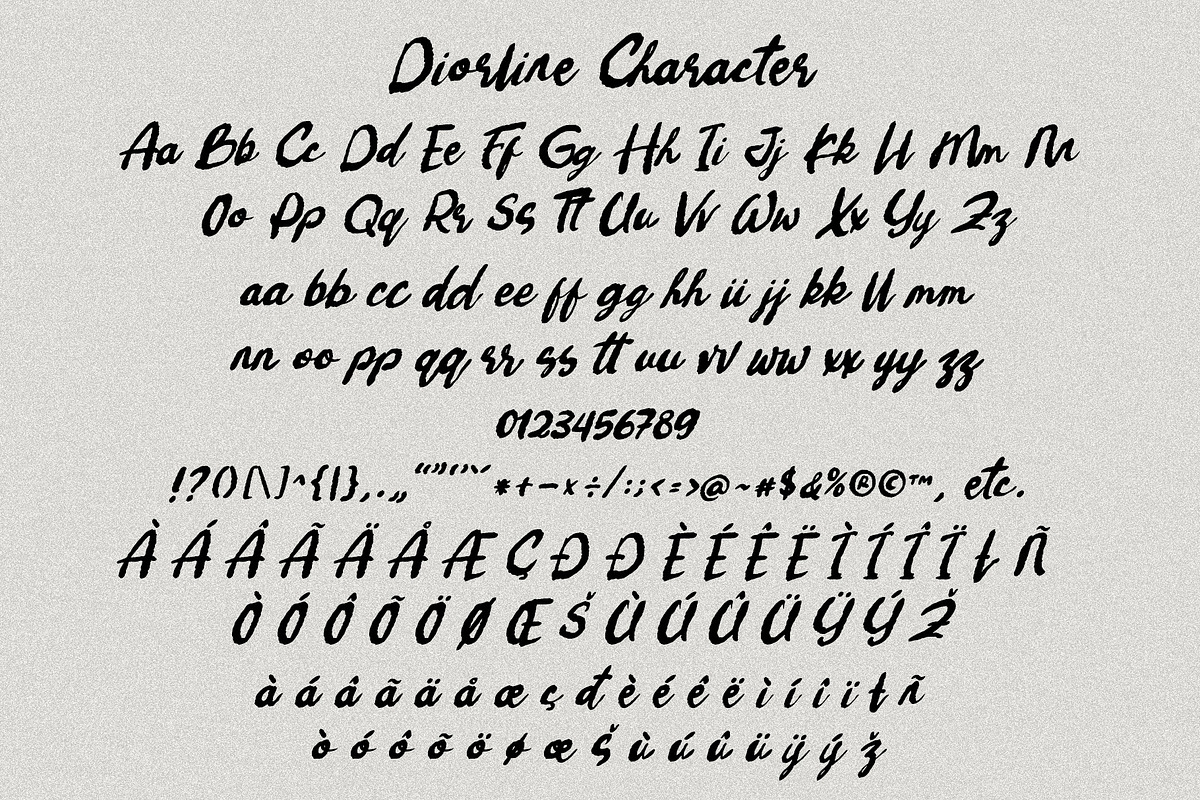 Diorline Character
Aa Bb Cc Dd Ee Ff Gg Hh Ii Jj Kk Ll Mm Nn
Oo Pp Qq Rr Ss Tt Uu Vv Ww Xx Yy Zz
aa bb cc dd ee ff gg hh ii jj kk ll mm
nn oo pp qq rr ss tt uu vv ww xx yy zz
0123456789
!?()[\]^{|},.„“”‘’*+–×÷/:;<=>@~#$&%®©™, etc.
À Á Â Ã Ä Å Æ Ç Ð Đ È É Ê Ë Ì Í Î Ï Ł Ñ
Ò Ó Ô Õ Ö Ø Œ Š Ù Ú Û Ü Ÿ Ý Ž
à á â ã ä å æ ç đ è é ê ë ì í î ï ł ñ
ò ó ô õ ö ø œ š ù ú û ü ÿ ý ž